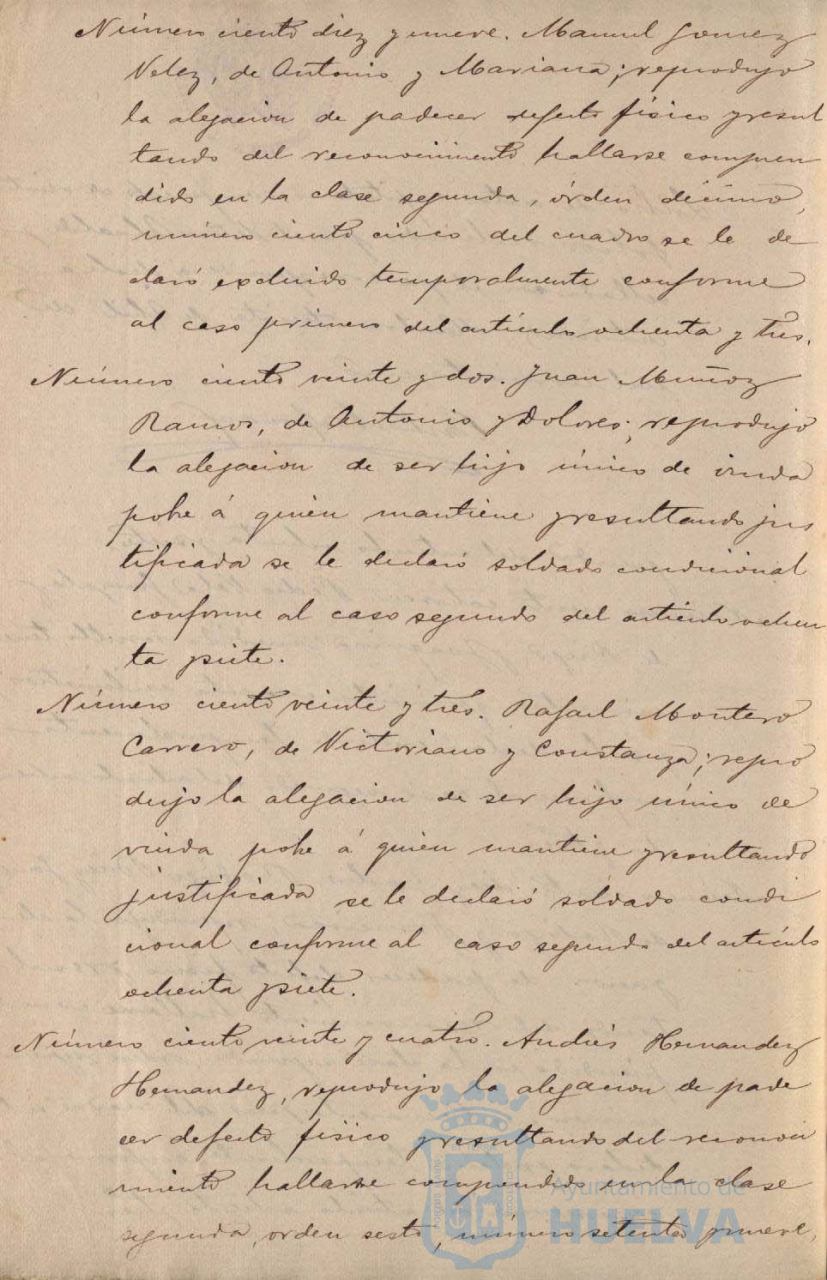 Número ciento diez y nueve. Manuel Gomez
Velez, de Antonio y Mariana; reprodujo
la alegacion de padecer defecto físico y resul
tando del reconocimiento hallarse compren
dido en la clase segunda, órden décimo,
número ciento cinco del cuadro se le de
claró excluido temporalmente conforme
al caso primero del artículo ochenta y tres.
Número ciento veinte y dos. Juan Muñoz
Ramos, de Antonio y Dolores; reprodujo
la alegacion de ser hijo único de viuda
pobre á quien mantiene y resultando jus
tificada se le declaró soldado condicional
conforme al caso segundo del artículo ochen
ta y siete.
Número ciento veinte y tres. Rafael Montero
Carrero, de Victoriano y Constanza; repro
dujo la alegacion de ser hijo único de
viuda pobre á quien mantiene y resultando
justificada se le declaró soldado condi
cional conforme al caso segundo del artículo
ochenta y siete.
Número ciento veinte y cuatro. Andrés Hernandez
Hernandez, reprodujo la alegacion de pade
cer defecto físico y resultando del reconoci
miento hallarse comprendido en la clase
segunda, orden sesto, número setenta y nueve,
Ayuntamiento de
HUELVA